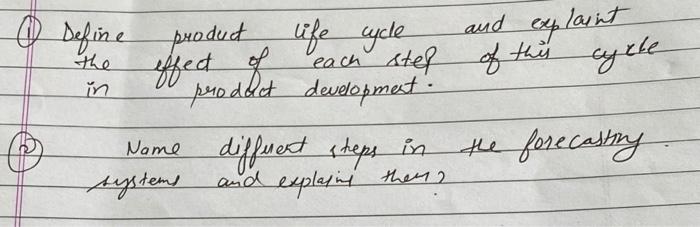 ① Define product life cycle and explaint
the effect of each step of this cycle
in product development.
② Name different steps in the forecasting
systems and explaing them?